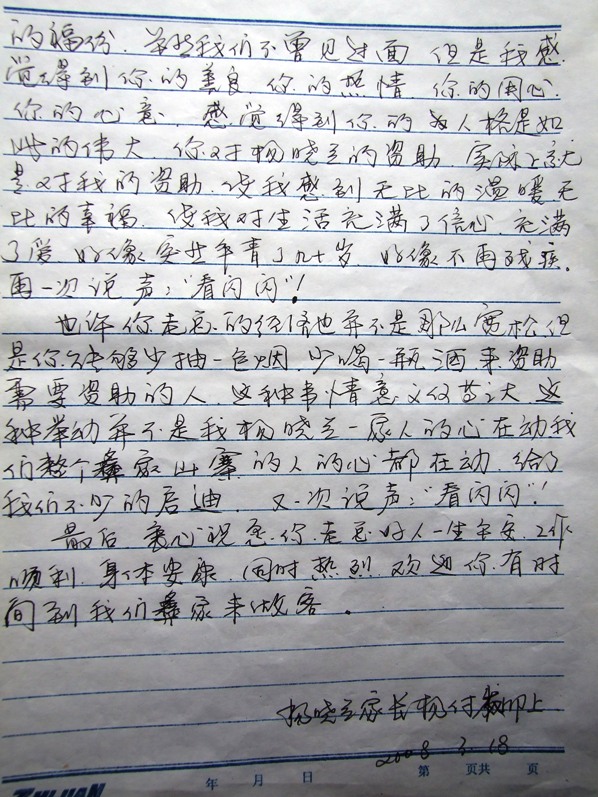 的福份。虽然我们不曾见过面 但是我感
觉得到你的善良 你的热情 你的用心
你的心意，感觉得到你的为人格是如
此的伟大，你对杨晓兰的资助，实际上就
是对我的资助，使我感到无比的温暖，无
比的幸福，使我对生活充满了信心，充满
了爱 好像突然年青了几十岁 好像不再残疾。
再一次说声：“看闪闪”！
也许你走总的经济也并不是那么宽松，但
是你能够少抽一包烟，少喝一瓶酒来资助
需要资助的人，这种事情意义何其之大，这
种举动并不是我杨晓兰一家人的心在动我
们整个彝家山寨的人的心都在动，给了
我们不少的启迪，又一次说声：“看闪闪”！
最后 衷心祝愿你 走总好人一生平安，工作
顺利，身体安康，同时热烈欢迎你有时
间到我们彝家来做客。
杨晓兰家长杨付 上
2008 3.18
年 月 日 第 页共 页